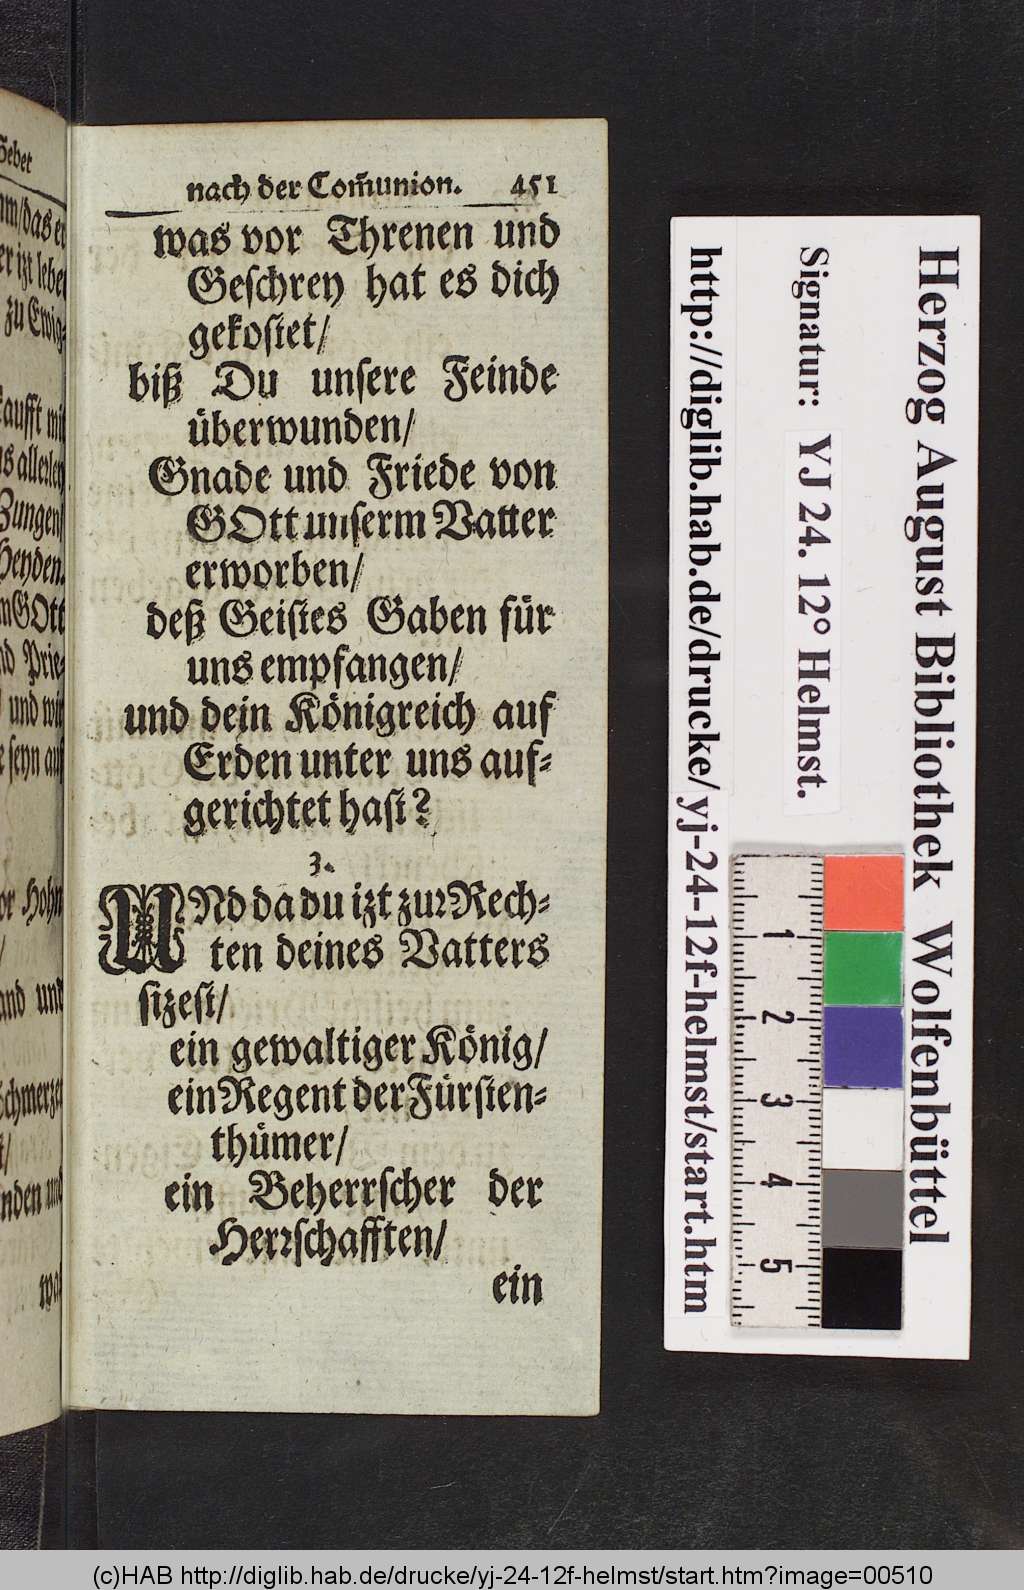 nach der Com̃union. 451
was vor Threnen und
Geschrey hat es dich
gekostet/
biß Du unsere Feinde
überwunden/
Gnade und Friede von
GOtt unserm Vatter
erworben/
deß Geistes Gaben für
uns empfangen/
und dein Königreich auf
Erden unter uns auf⸗
gerichtet hast?
3.
UNd da du izt zur Rech⸗
ten deines Vatters
sizest/
ein gewaltiger König/
ein Regent der Fürsten⸗
thümer/
ein Beherrscher der
Herrschafften/
ein
Gebet
das er
er izt lebet
zu Ewig⸗
kaufft mit
allerley
Zungen/
Heyden.
GOtt
Prie⸗
und wir
seyn auf
Hohn
und
Schmerzen
und
Herzog August Bibliothek Wolfenbüttel
Signatur: YJ 24. 12° Helmst.
http://diglib.hab.de/drucke/yj-24-12f-helmst/start.htm
1
2
3
4
5
(c)HAB http://diglib.hab.de/drucke/yj-24-12f-helmst/start.htm?image=00510